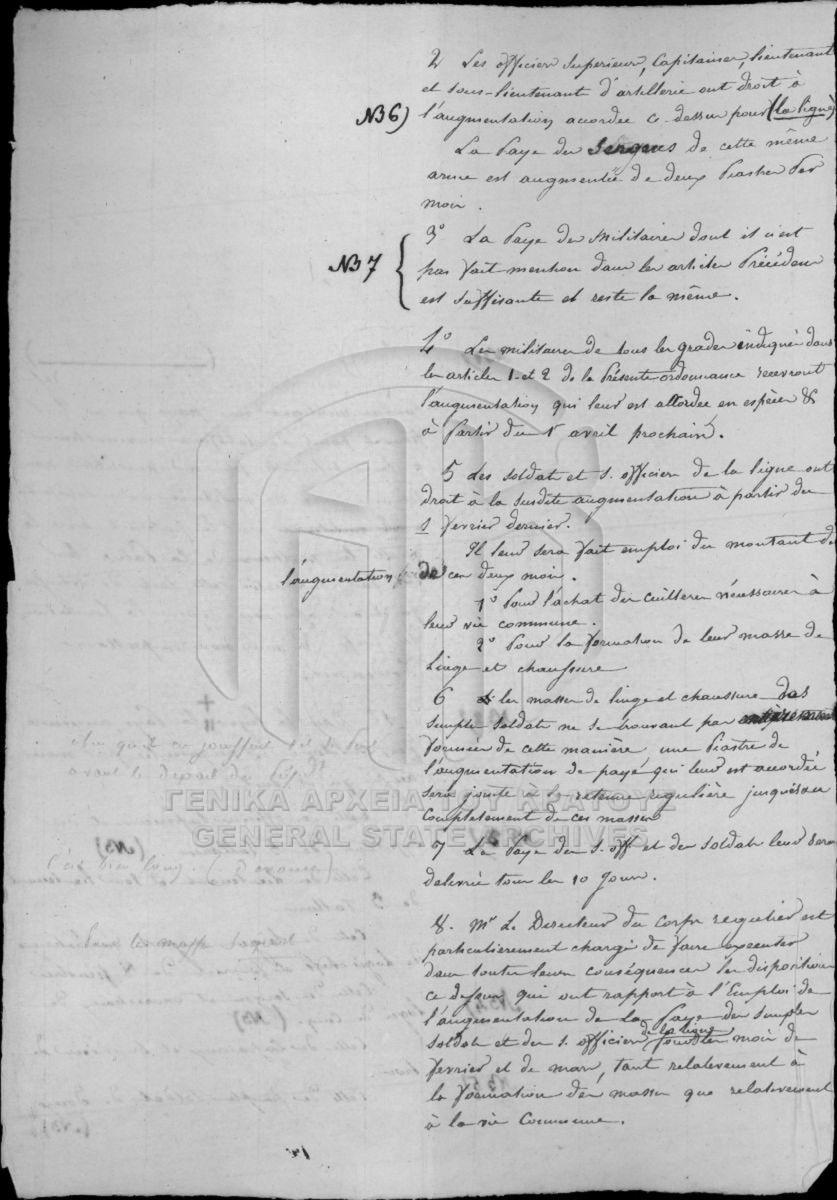 2 Les officiers superieurs, Capitaines, lieutenant
et sous-lieutenant d'artillerie ont droit à
N36) l'augmentation accordée ci-dessus pour (la ligne)
La Paye des Sergens de cette même
arme est augmentée de deux Piastres Per
mois.
N37 { 3° La Paye des Militaires dont il n'est
pas fait mention dans les articles Précédens
est suffisante et reste la même.
4° Les militaires de tous les grades indiqués dans
les articles 1 et 2 de la Présente ordonnance recevront
l'augmentation qui leur est accordée en espèces &
à Partir du 1r avril prochain.
5 Les soldats et s. officiers de la ligne ont
droit à la susdite augmentation à partir du
1 fevrier dernier.
Il leur sera fait emploi du montant de
l'augmentation de ces deux mois.
1° Pour l'achat des cuilleres nécessaires à
leur vie commune.
2° Pour la formation de leur masse de
Linge et chaussure
6 Si les masses de linge et chaussure des
simples soldats ne se trouvant pas
formées de cette manière une Piastre de
l'augmentation de paye qui leur est accordée
sera jointe à la retenue regulière jusquesau
completement de ces masses
ΓΕΝΙΚΑ ΑΡΧΕΙΑ ΤΟΥ ΚΡΑΤΟΥΣ
GENERAL STATE ARCHIVES
7 La Paye des s. off et des soldats leur sera
delivrée tous les 10 Jours.
8. Mr Le Directeur du corps regulier est
particulierement chargé de faire executer
dans toutes leurs conséquences les dispositions
ci dessus qui ont rapport à l'Emploi de
l'augmentation de la Paye des simples
soldats et des s. officiers de la ligne pour les mois de
fevrier et de mars, tant relativement à
la formation des masses que relativement
à la vie Commune.